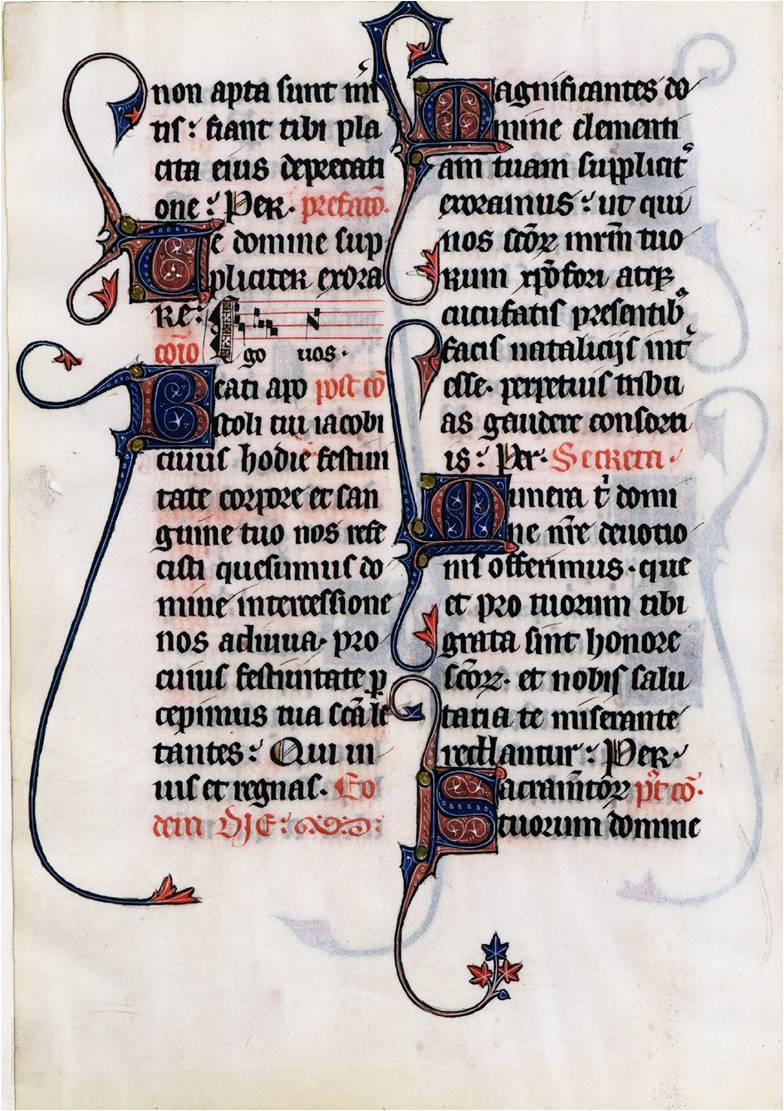 non apta sunt mẽ
tis : fiant tibi pla
cita eius deprecati
one : Per · prefatō·
Te domine sup
pliciter exora
re :
cōīo Ego uos ·
Beati apo post cō
stoli tui iacobi
cuius hodie festiui
tate corpore et san
guine tuo nos refe
cisti quesumus do
mine intercessione
nos adiuua · pro
cuius festiuitate ꝑ
cepimus tua scā le
tantes : Qui ui
uis et regnas · Eo
dem DIE :
Magnificantes do
mine clementi
am tuam supplicit᷑
exoramus : ut qui
nos scōꝝ mr̄m tuo
rum xp̄ofori atqꝫ
cucufatis presentibꝰ
facis natalicijs int᷑
esse · perpetuis tribu
as gaudere consorti
is : Per · Secreta ·
Munera t̾ domi
ne nr̄e deuotio
nis offerimus · que
et pro tuorum tibi
grata sint honore
scōꝝ · et nobis salu
taria te miserante
reddantur : Per
Sacramētoꝝ pꝰt cō·
tuorum domine